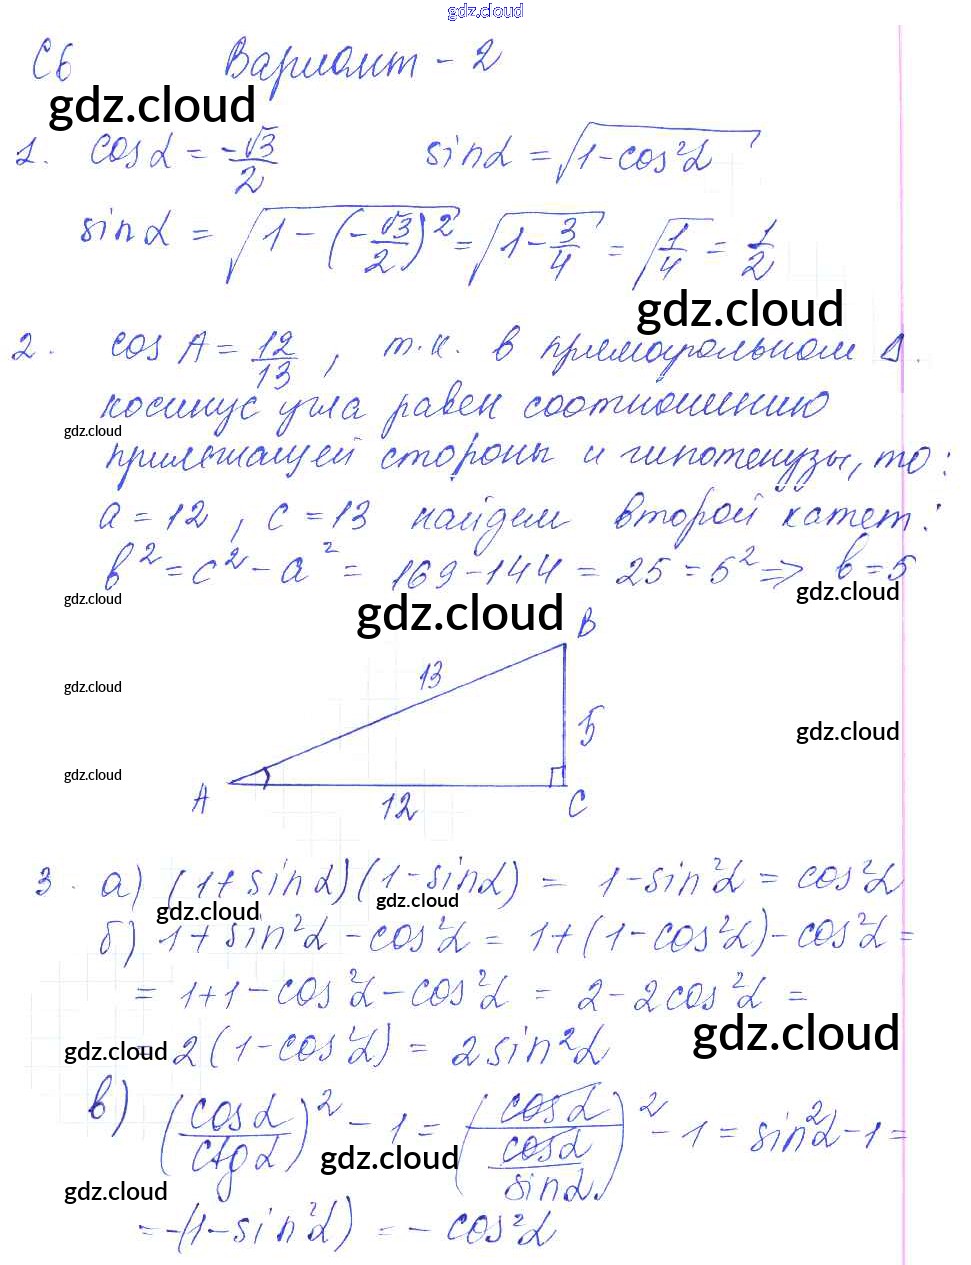 gdz.cloud
С6 Вариант - 2
gdz.cloud
1. cos α = -√3/2 sin α = √(1-cos²α)
sin α = √(1-(-√3/2)²) = √(1-3/4) = √(1/4) = 1/2
gdz.cloud
2. cos A = 12/13, т.к. в прямоугольном Δ
косинус угла равен соотношению
gdz.cloud
прилежащей стороны и гипотенузы, то:
a = 12, c = 13 найдем второй катет:
b² = c² - a² = 169-144 = 25 = 5² => b = 5
gdz.cloud gdz.cloud gdz.cloud
B
13
gdz.cloud
5
gdz.cloud
gdz.cloud
A 12 C
3. а) (1+sin α)(1-sin α) = 1-sin²α = cos²α
gdz.cloud gdz.cloud
б) 1+sin²α - cos²α = 1+(1-cos²α)-cos²α =
= 1+1-cos²α-cos²α = 2-2cos²α =
gdz.cloud gdz.cloud
= 2(1-cos²α) = 2sin²α
в) (cos α/ctg α)² - 1 = (cos α/(cos α/sin α))² - 1 = sin²α-1 =
gdz.cloud
gdz.cloud
= -(1-sin²α) = -cos²α